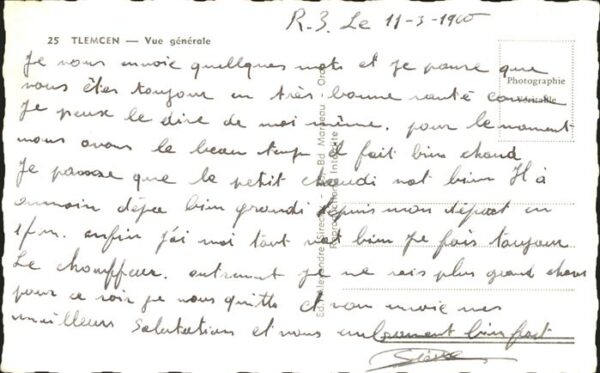 R.3. Le 11-3-1960
25 TLEMCEN — Vue générale
Photographie
Véritable
Je vous envoie quellques mots et je panse que
vous êtes toujour en très bonne santé comme
Je peux le dire de moi même. pour le moment
nous avons le beau temp il fait bien chaud
Je pansse que le petit va bien Il à
déjea bien grandi depuis mon départ en
enfin j'ai moi tout vat bien Je fais toujour
Le chauffeur. autrement je ne vois plus grand chose
pour ce soir je vous quitte et vou envoie mes
meilleurs salutations et vous bien fort
Reproduction Interdite